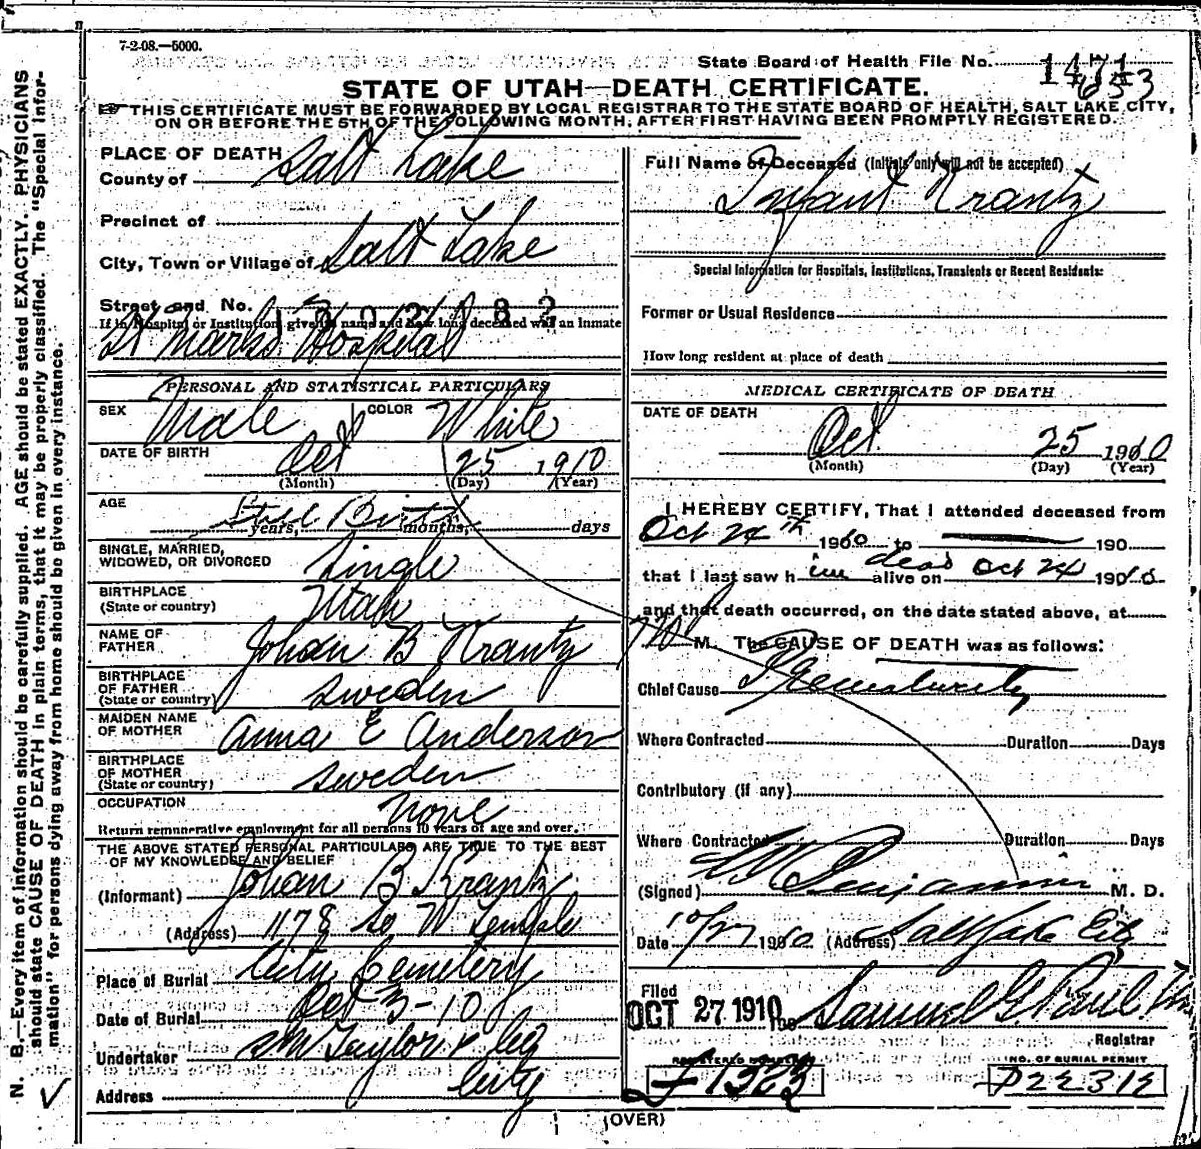 7-2-08.—5000.
State Board of Health File No. 1471
653
STATE OF UTAH—DEATH CERTIFICATE.
THIS CERTIFICATE MUST BE FORWARDED BY LOCAL REGISTRAR TO THE STATE BOARD OF HEALTH, SALT LAKE CITY,
ON OR BEFORE THE 5TH OF THE FOLLOWING MONTH, AFTER FIRST HAVING BEEN PROMPTLY REGISTERED.
N. B.—Every item of information should be carefully supplied. AGE should be stated EXACTLY. PHYSICIANS
should state CAUSE OF DEATH in plain terms, that it may be properly classified. The "Special Infor-
mation" for persons dying away from home should be given in every instance.
PLACE OF DEATH
County of Salt Lake
Precinct of
City, Town or Village of Salt Lake
Street and No.
If in Hospital or Institution, give its name and how long deceased was an inmate
St Marks Hospital
PERSONAL AND STATISTICAL PARTICULARS
SEX Male COLOR White
DATE OF BIRTH Oct 25 1910
(Month) (Day) (Year)
AGE Still Birth
years, months, days
SINGLE, MARRIED,
WIDOWED, OR DIVORCED Single
BIRTHPLACE
(State or country) Utah
NAME OF
FATHER Johan B Krantz
BIRTHPLACE
OF FATHER
(State or country) Sweden
MAIDEN NAME
OF MOTHER Anna E Anderson
BIRTHPLACE
OF MOTHER
(State or country) Sweden
OCCUPATION None
Return remunerative employment for all persons 10 years of age and over.
THE ABOVE STATED PERSONAL PARTICULARS ARE TRUE TO THE BEST
OF MY KNOWLEDGE AND BELIEF
(Informant) Johan B Krantz
(Address) 1178 So W Temple
Place of Burial City Cemetery
Date of Burial Oct 3-10
Undertaker S M Taylor & Co
Address City
Full Name of Deceased (Initials only will not be accepted)
Infant Krantz
Special Information for Hospitals, Institutions, Transients or Recent Residents:
Former or Usual Residence
How long resident at place of death
MEDICAL CERTIFICATE OF DEATH
DATE OF DEATH
Oct 25 1910
(Month) (Day) (Year)
I HEREBY CERTIFY, That I attended deceased from
Oct 24th 1910 to 190
that I last saw him dead alive on Oct 24 1910
and that death occurred, on the date stated above, at
M. The CAUSE OF DEATH was as follows:
Chief Cause Prematurity
Where Contracted Duration Days
Contributory (if any)
Where Contracted Duration Days
(Signed) Benjamin M. D.
Date 10/27 1910 (Address) Salt Lake City
Filed
OCT 27 1910 Samuel G. Paul
Registrar
REGISTERED NUMBER
1323
NO. OF BURIAL PERMIT
P22312
(OVER)